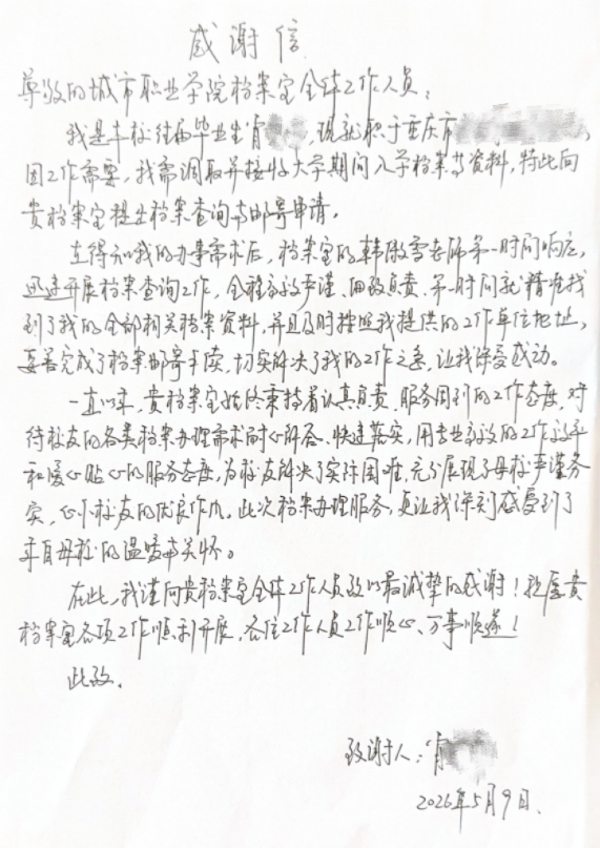 感谢信
尊敬的城市职业学院档案室全体工作人员：
我是本校往届毕业生肖，现就职于重庆市，
因工作需要，我需调取并接收大学期间入学档案等资料，特此向
贵档案室提出档案查询与邮寄申请。
在得知我的办事需求后，档案室的韩傲雪老师第一时间响应，
迅速开展档案查询工作，全程高效严谨、细致负责，第一时间就精准找
到了我的全部相关档案资料，并且及时按照我提供的工作单位地址，
妥善完成了档案邮寄手续，切实解决了我的工作之急，让我深受感动。
一直以来，贵档案室始终秉持着认真负责、服务周到的工作态度，对
待校友的各类档案办理需求耐心解答、快速落实，用专业高效的工作效率
和暖心贴心的服务态度，为校友解决了实际困难，充分展现了母校严谨务
实、心系校友的优良作风。此次档案办理服务，更让我深刻感受到了
来自母校的温暖与关怀。
在此，我谨向贵档案室全体工作人员致以最诚挚的感谢！祝愿贵
档案室各项工作顺利开展，各位工作人员工作顺心、万事顺遂！
此致。
致谢人：肖
2026年5月9日.